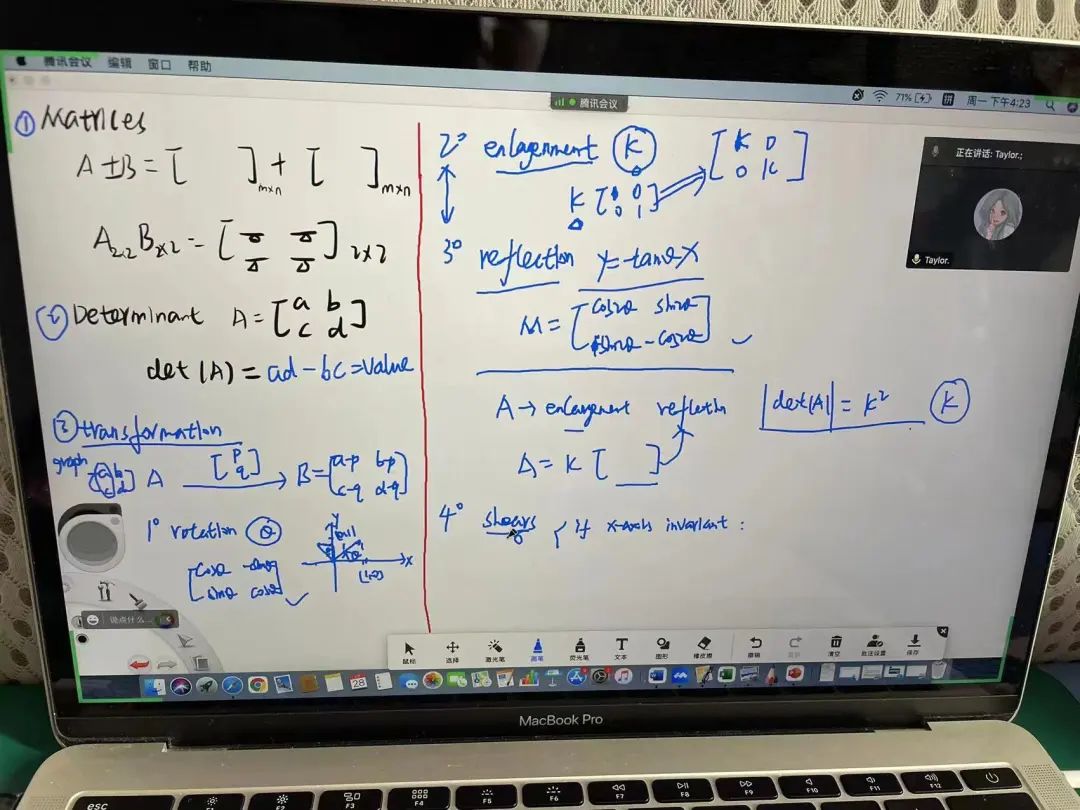 腾讯会议 编辑 窗口 帮助
71% 拼 周一 下午4:23
腾讯会议
正在讲话: Taylor.;
Taylor.
① Matrices
A±B = [ ]m×n + [ ]m×n
A2×2 B2×2 = [ ]2×2
② Determinant A = [a b
c d]
det(A) = ad - bc = Value
③ transformation
graph
[a b
c d] A [p
q] → B = [a-p b-p
c-q d-q]
1° rotation θ
y
x
(1,0)
[cosθ -sinθ
sinθ cosθ]
2° enlagenment K [K 0
0 K]
K [1 0
0 1]
3° reflection y=tanθx
M = [cos2θ sin2θ
sin2θ -cos2θ]
A → enlargement reflectin
|det(A)| = K² K
A = K [ ]
4° shears { if x-axis invariant :
说点什么...
鼠标 选择 激光笔 画笔 荧光笔 文本 图形 橡皮擦 撤销 重做 清空 批注设置 保存
28
MacBook Pro
esc F1 F2 F3 F4 F5 F6 F7 F8 F9 F10 F11 F12